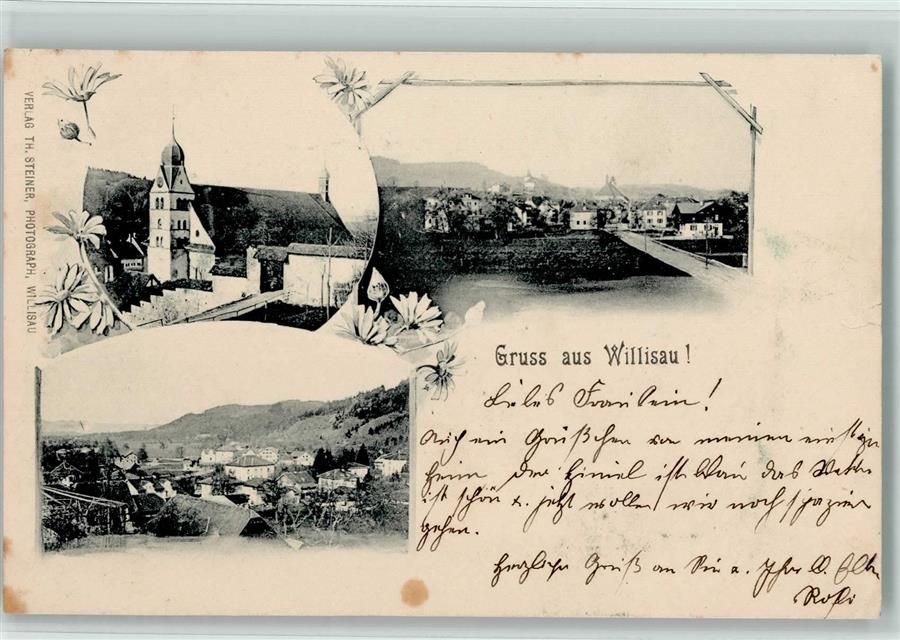 VERLAG TH. STEINER, PHOTOGRAPH, WILLISAU
Gruss aus Willisau!
Liebes Fraulein!
Auch ein Grüßchen von meinem einstigen
Heim. Der Himmel ist blau das Wetter
ist schön u. jetzt wollen wir noch spazieren
gehen.
Herzliche Gruß an Sie u. Ihre l. Eltern
Rosi